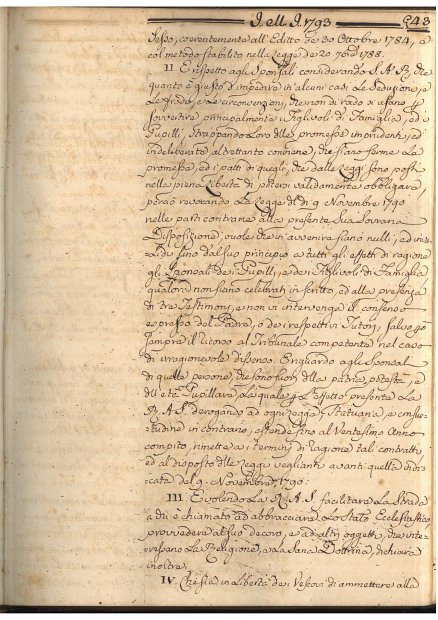 I. M. I. 1793 643
Tesso, coerentemente all'Editto de 30 Ottobre 1784, e
col metodo stabilito nella Legge de 20 7bre 1788.
II E rispetto agli Sponsali considerando S. A. R. che
quanto è giusto d'impedire in alcuni casi le Seduzioni, e
le frodi, e le circonvenzioni, che non di rado si usano per
sorvertire principalmente i Figlivoli di Famiglia, ed i
Pupilli, strappando Loro delle promesse imprudenti, ed
indeliberate, altrettanto conviene, che siano ferme le
promesse, ed i patti di quegli, che dalle Leggi sono posti
nella piena Libertà di potersi validamente obbligare,
perciò revocando la Legge de' 9 Novembre 1790
nelle parti contrarie alla presente Sua Sovrana
Disposizione, vuole che in avvenire siano nulli, ed inva-
lidi fino dal suo principio a tutti gli effetti di ragione
gli Sponsali de i Pupilli, e de i Figlivoli di Famiglia
qualora non siano celebrati in scritto, ed alla presenza
di tre Testimoni, e non vi intervenga il consenso
espresso del Padre, o de i respettivi Tutori, salvo però
sempre il ricorso al Tribunale competente nel caso
di irragionevole dissenso. E riguardo agli Sponsali
di quelle persone, che sono fuori della patria potestà, e
dell'età Pupillare, la quale per l'effetto presente la
R. A. S. derogando ad ogni legge, Statuaria, e consue-
tudine in contrario, estende fino al Ventesimo Anno
compito, rimette a i termini di ragione tali contratti,
ed al disposto delle Leggi veglianti avanti quella di so-
cata del 9 Novembre 1790.
III. E volendo la R. A. S. facilitare la Strada
a chi è chiamato ad abbracciare lo Stato Ecclesiastico
provvedere al suo decoro, e ad altri oggetti, che inte-
ressano la Religione, e la Sana Dottrina, dichiara
inoltre.
IV Che sia in libertà dei Vescovi di ammettere alla